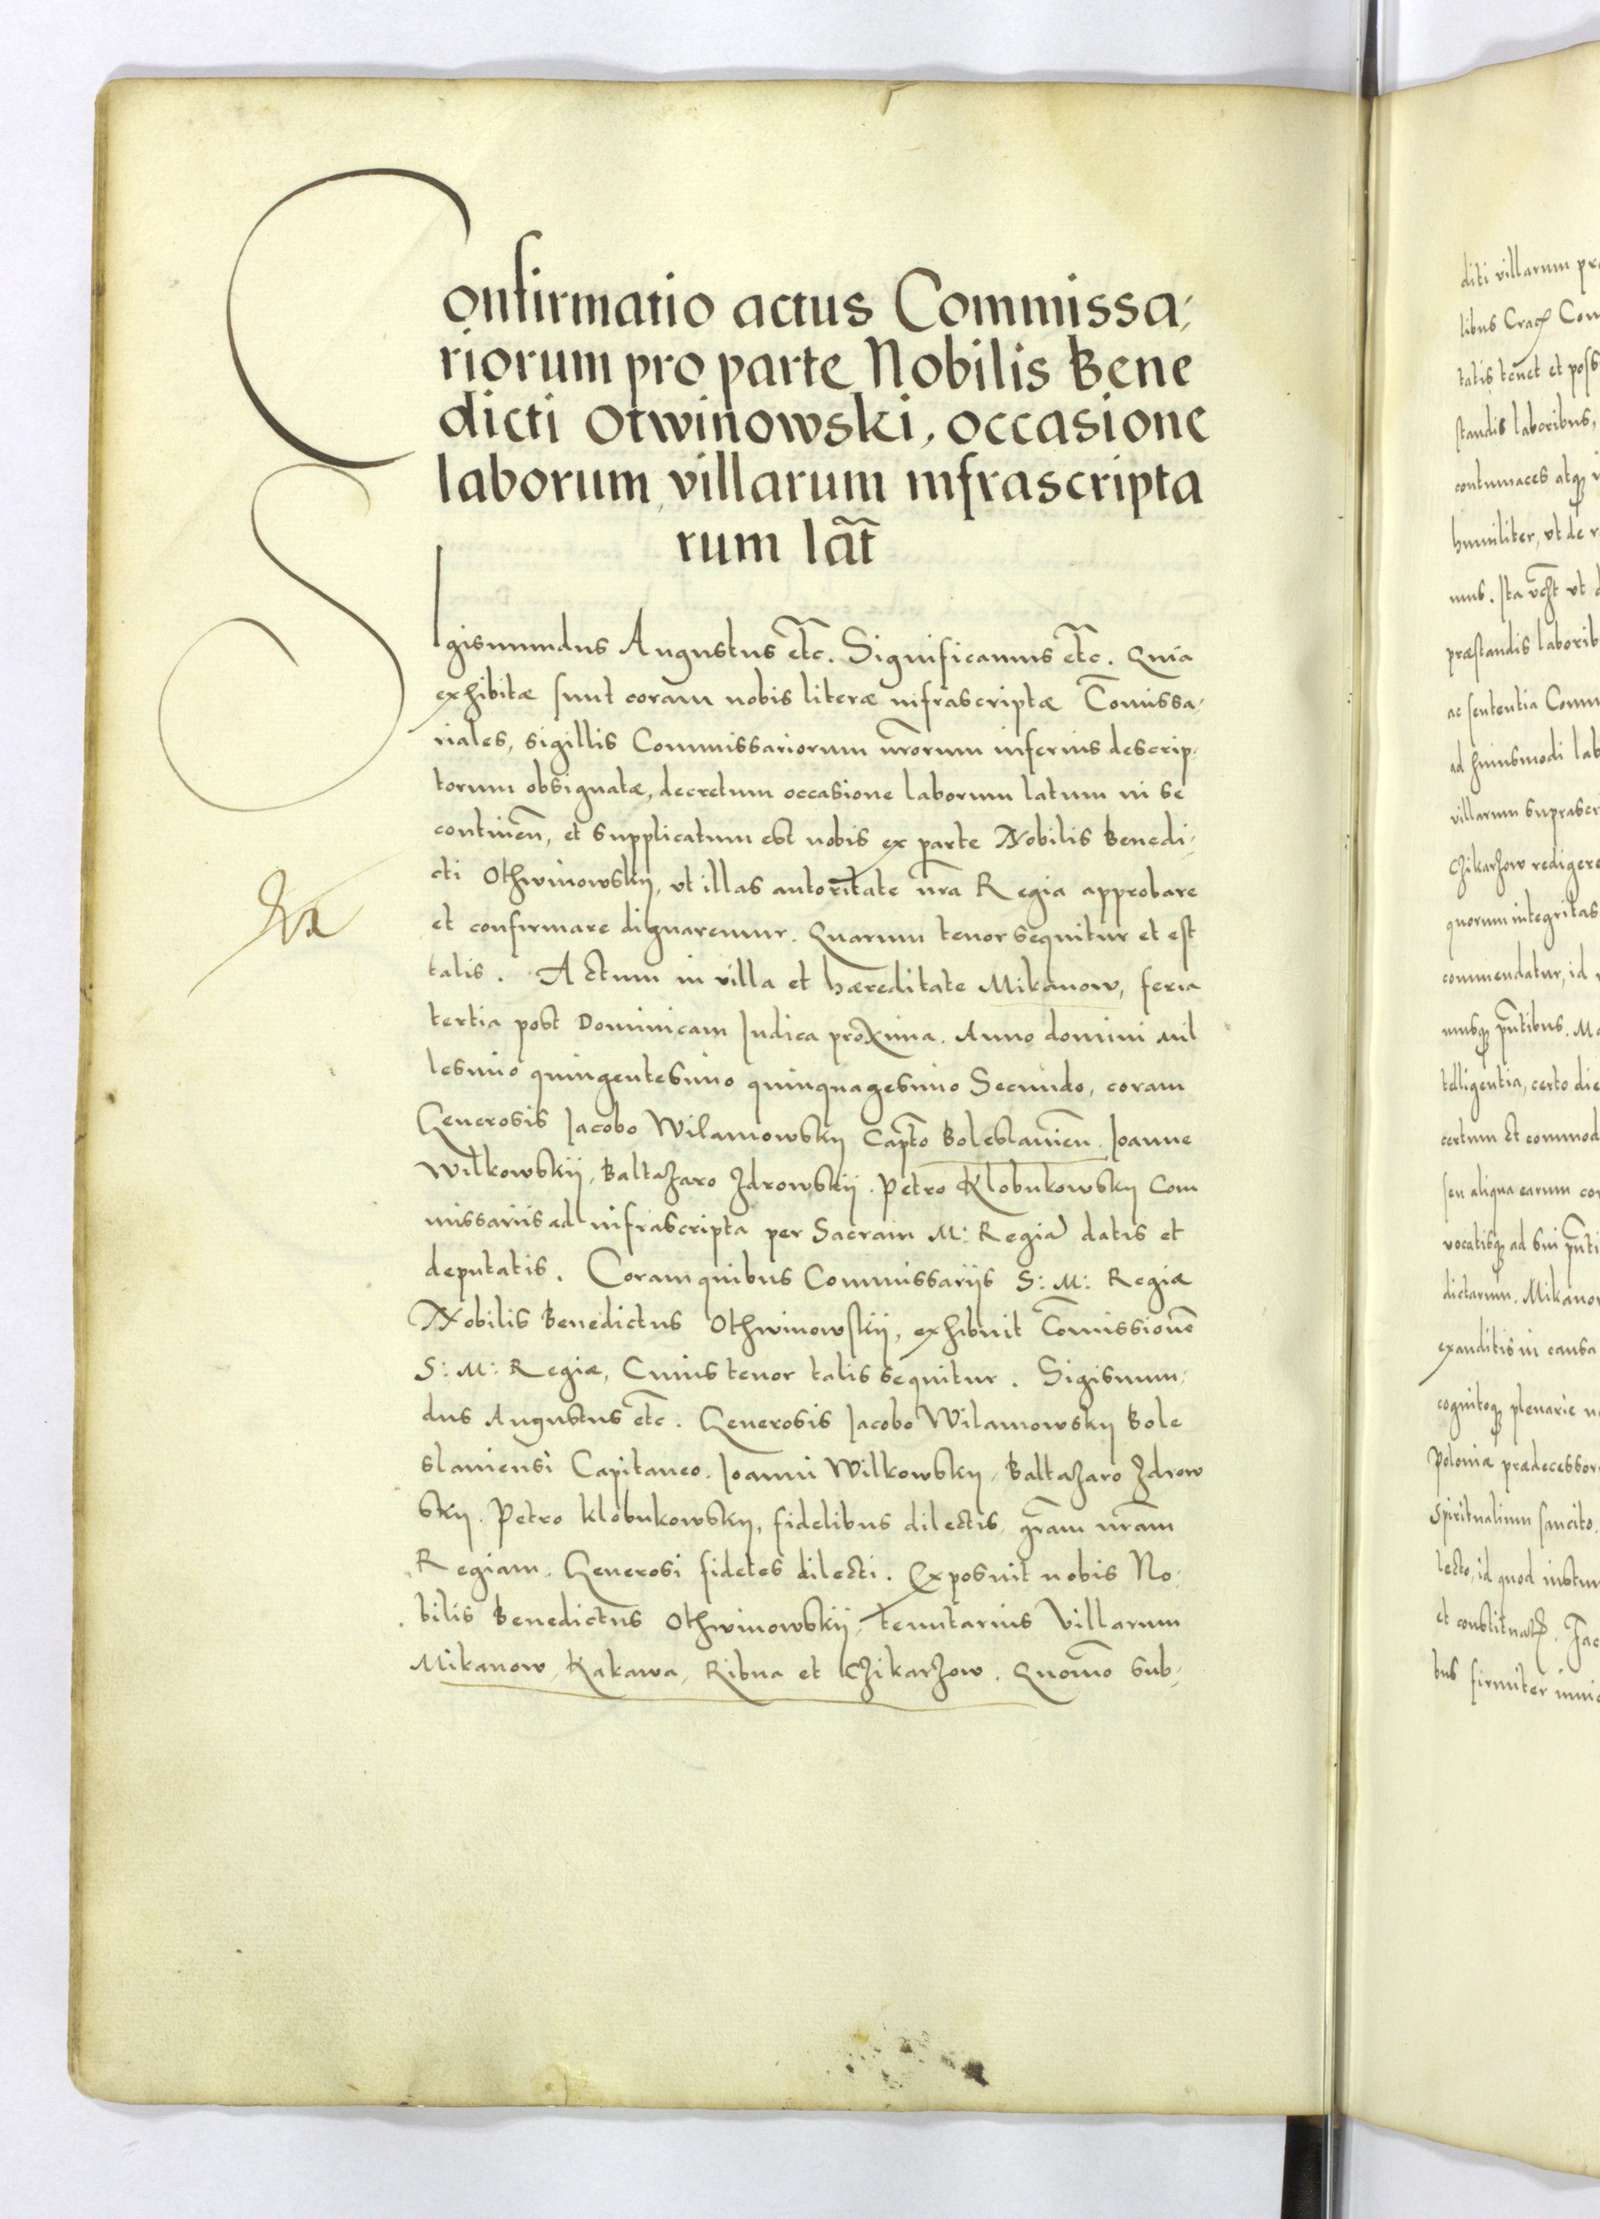 Confirmatio actus Commissa-
riorum pro parte Nobilis Bene
dicti Otwinowski, occasione
laborum, villarum infrascripta
rum lat̃
Sigismundus Augustus etc̃. Significamus etc̃. Quia
exhibitæ sunt coram nobis literæ infrascriptæ Com̃issa-
riales, sigillis Commissariorum nr̃orum inferius descrip-
torum obsignatæ, decretum occasione laborum latum in se
continen̄, et supplicatum est nobis ex parte Nobilis Benedi-
cti Othwinowskij, vt illas autoritate nr̃a Regia approbare
et confirmare dignaremur. Quarum tenor sequitur et est
talis. Actum in villa et hæreditate Mikanow, feria
tertia post Dominicam Iudica proxima. Anno domini mil
lesimo quingentesimo quinquagesimo Secundo, coram
Generosis Iacobo Wilamowskij Capt̃o Boleslauien̄. Ioanne
Wilkowskij, Baltazaro Zdrowskij. Petro Klobukowskij Com
missariis ad infrascripta per Sacram M: Regiã datis et
deputatis. Coram quibus Commissarijs S: M: Regiæ
Nobilis Benedictus Othwinowskij, exhibuit Com̃issionẽ
S: M: Regiæ, Cuius tenor talis sequitur. Sigismun-
dus Augustus etc̃. Generosis Iacobo Wilamowskij Bole
slauiensi Capitaneo. Ioanni Wilkowskij, Baltazaro Zdrow
skij. Petro Klobukowskij, fidelibus dilectis, gr̃am nr̃am
Regiam. Generosi fideles dilecti. Exposuit nobis No-
bilis Benedictus Othwinowskij, tenutarius Villarum
Mikanow, Kakawa, Ribna et Czikarzow. Quomõ sub-
diti villarum
libus Crac̃
tatis tenet et
standis laboribus,
contumaces atq̃
humiliter, vt de
mus. Ita vt
præstandis
ac sententia
ad huiusmodi
villarum
Czikarzow
quorum integritas
commendatur, id
telligentia, certo
certum et
seu aliqua earum
vocatisq̃ ad sui
dictarum. Mikanow
exauditis in causa
cognitoq̃ plenarie
Poloniæ
Spiritualium sancito.
lecto, id quod
bus firmiter